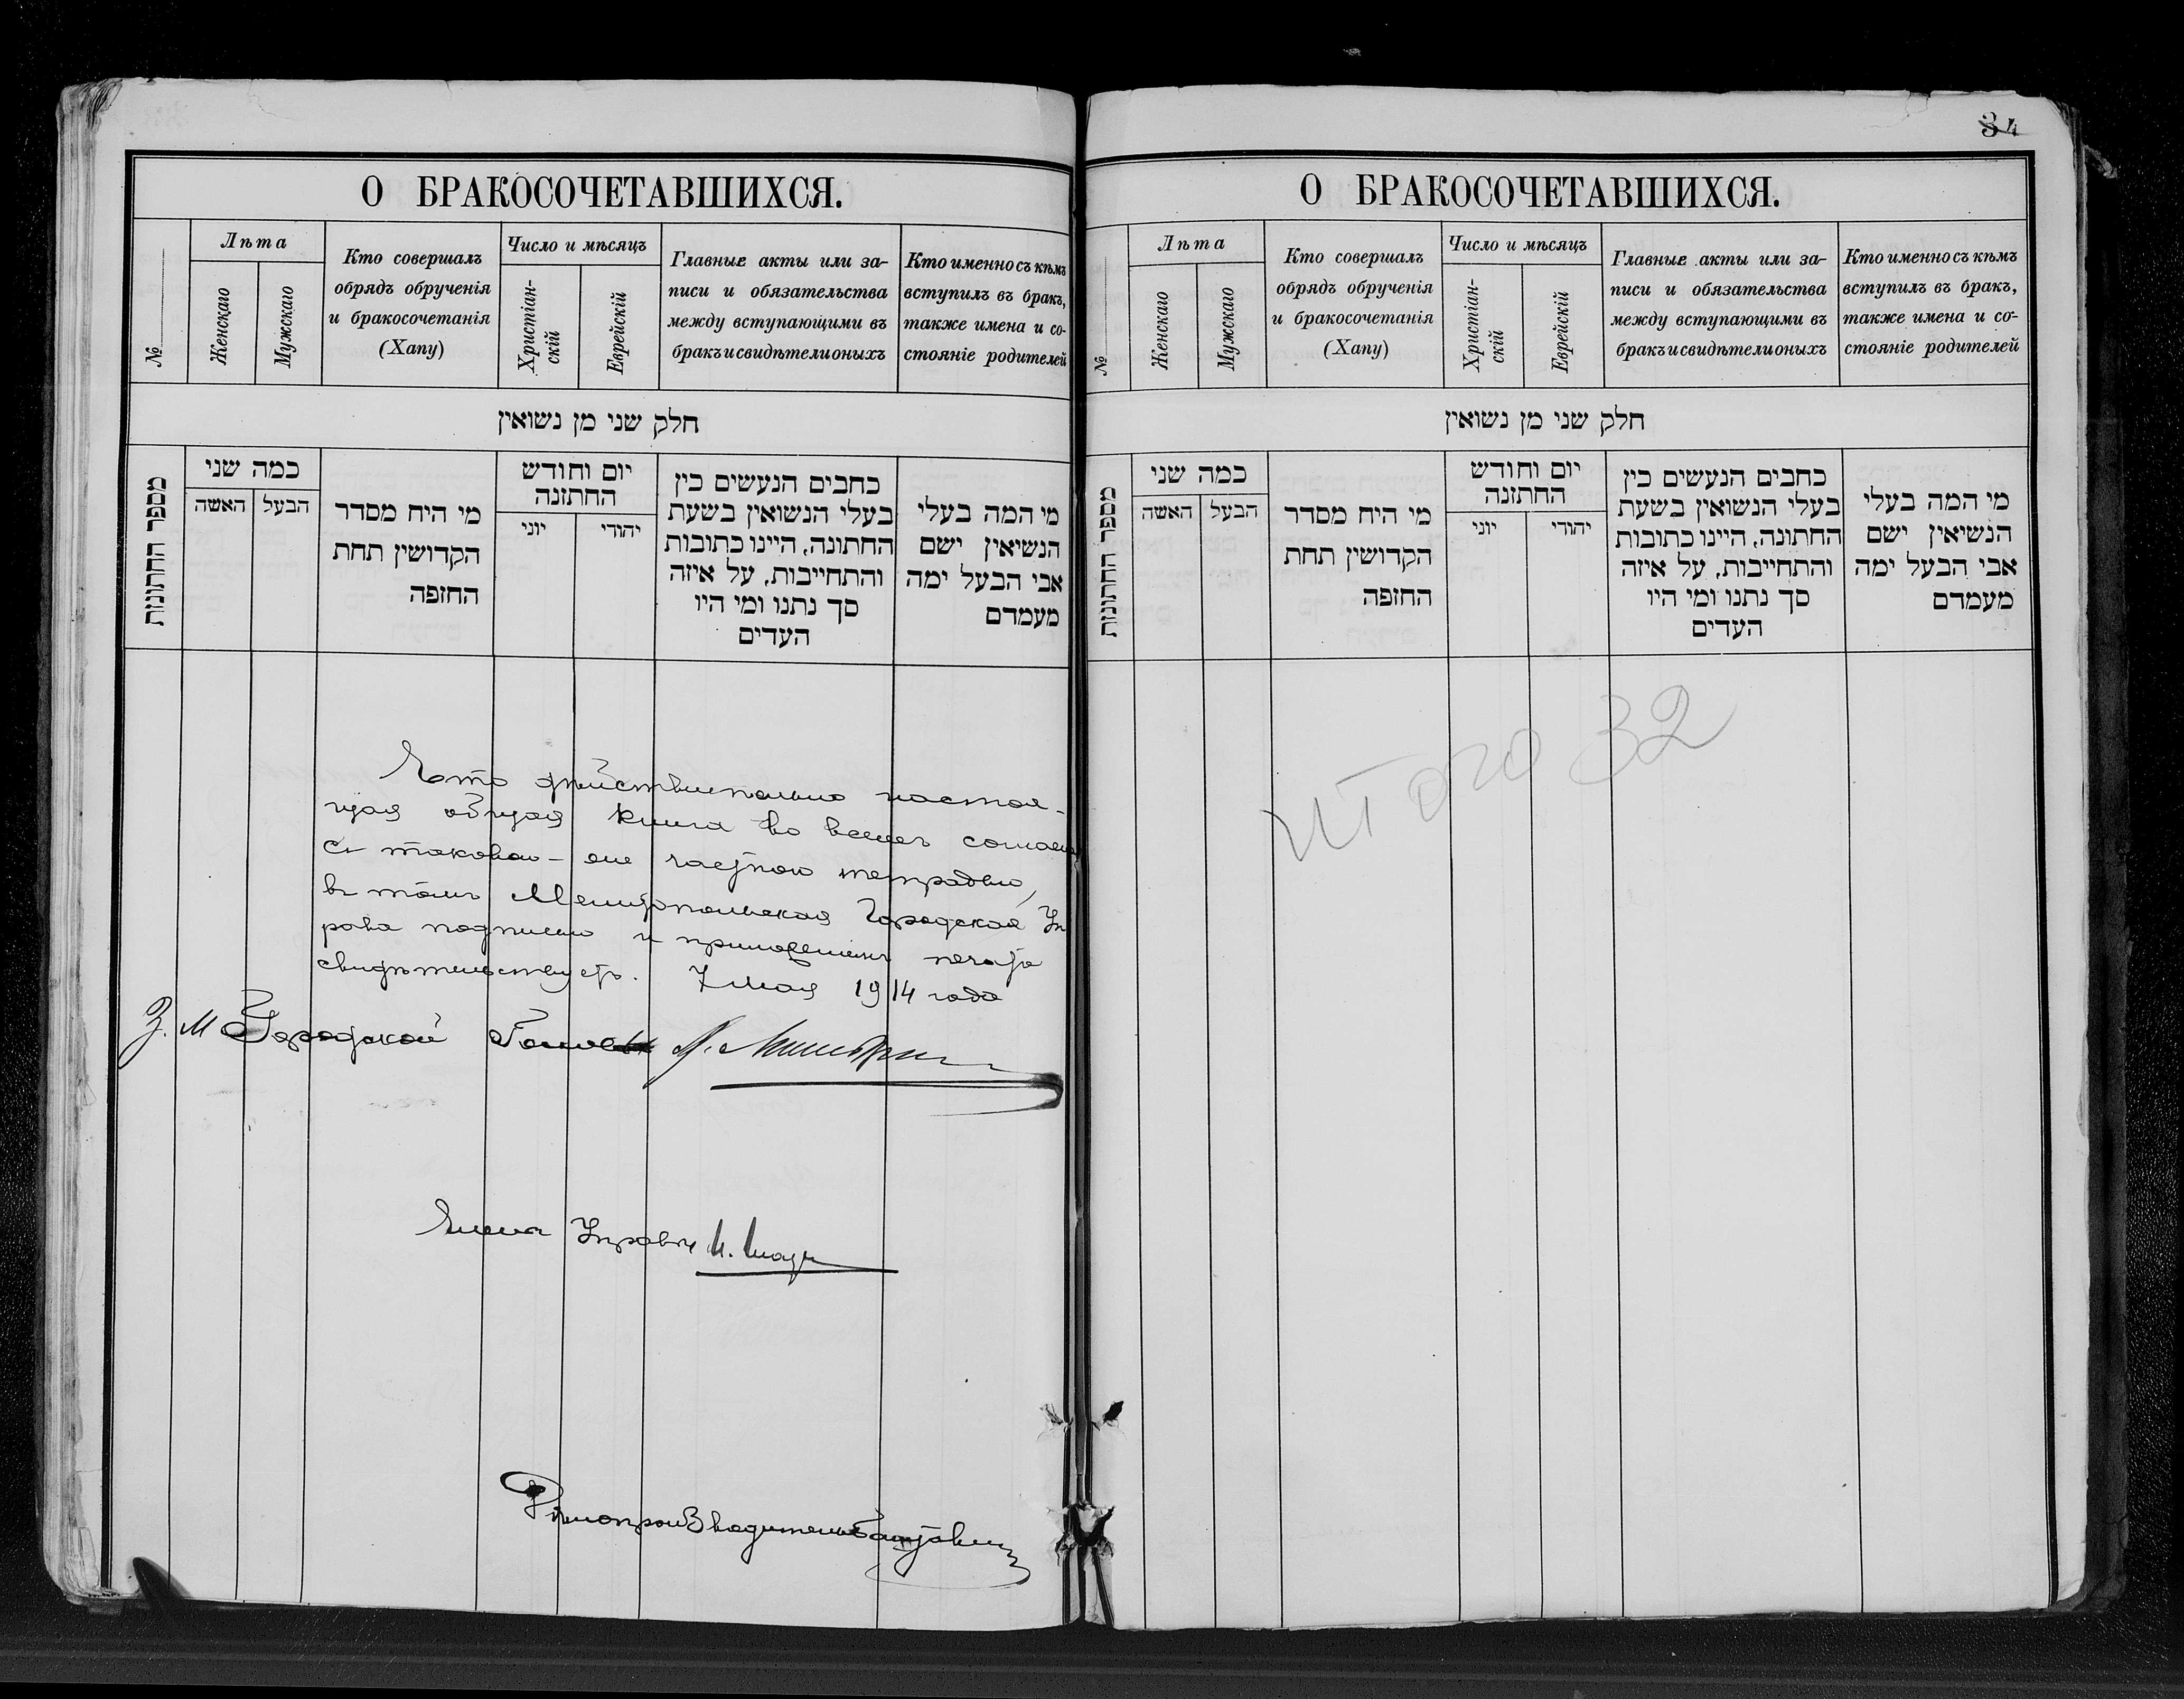 О БРАКОСОЧЕТАВШИХСЯ.
№
Лѣта
Женскаго
Мужскаго
Кто совершалъ
обрядъ обрученія
и бракосочетанія
(Хапу)
Число и мѣсяцъ
Христіан-
скій
Еврейскій
Главные акты или за-
писи и обязательства
между вступающими въ
бракъ и свидѣтели оныхъ
Кто именно съ кѣмъ
вступилъ въ бракъ,
также имена и со-
стояніе родителей
חלק שני מן נשואין
מספר החתונות
כמה שני
האשה
הבעל
מי היח מסדר
הקדושין תחת
החופה
יום וחודש
החתונה
יוני
יהודי
כתבים הנעשים בין
בעלי הנשואין בשעת
החתונה, היינו כתובות
והתחייבות, על איזה
סך נתנו ומי היו
העדים
מי המה בעלי
הנשיאין ישם
אבי הבעל ימה
מעמדם
Что дѣйствительно настоя-
щая общая книга во всемъ
съ таковою-же частною тетрадью,
въ томъ Мелитопольская Городская Уп
рава подписью и приложеніемъ печати
свидѣтельствуетъ. 7 Мая 1914 года
З. М Городской
Членъ Управы
Дѣлопроизводитель
34
О БРАКОСОЧЕТАВШИХСЯ.
№
Лѣта
Женскаго
Мужскаго
Кто совершалъ
обрядъ обрученія
и бракосочетанія
(Хапу)
Число и мѣсяцъ
Христіан-
скій
Еврейскій
Главные акты или за-
писи и обязательства
между вступающими въ
бракъ и свидѣтели оныхъ
Кто именно съ кѣмъ
вступилъ въ бракъ,
также имена и со-
стояніе родителей
חלק שני מן נשואין
מספר החתונות
כמה שני
האשה
הבעל
מי היח מסדר
הקדושין תחת
החופה
יום וחודש
החתונה
יוני
יהודי
כתבים הנעשים בין
בעלי הנשואין בשעת
החתונה, היינו כתובות
והתחייבות, על איזה
סך נתנו ומי היו
העדים
מי המה בעלי
הנשיאין ישם
אבי הבעל ימה
מעמדם
Итого 32